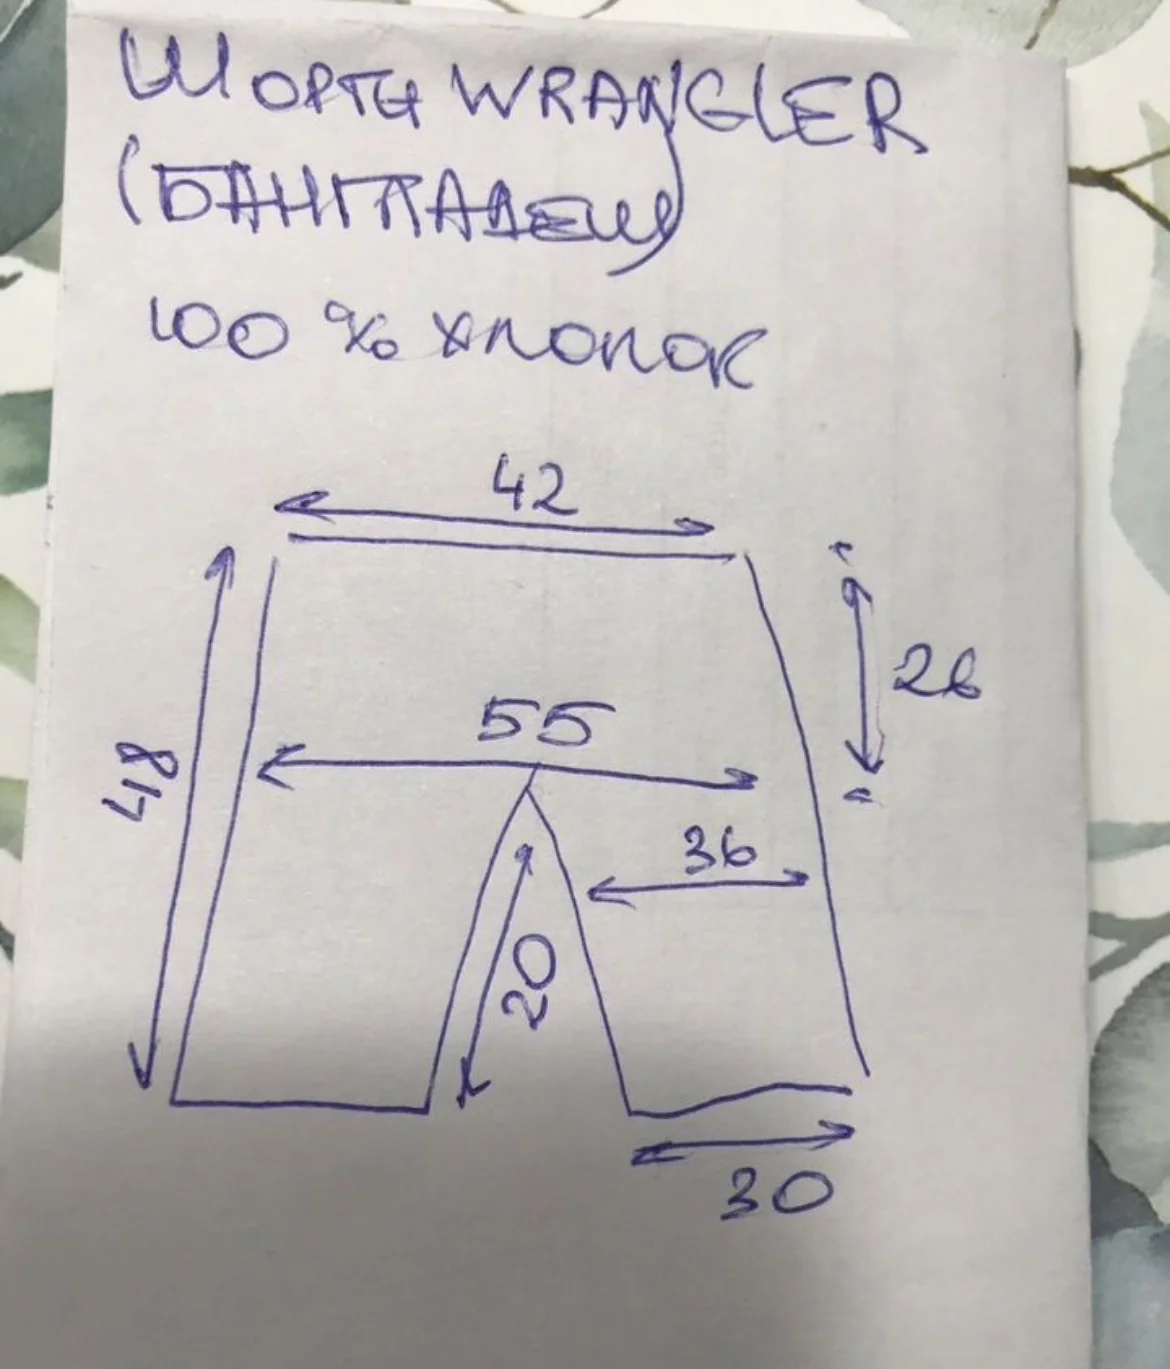 ШОРТЫ WRANGLER
(БАНГЛАДЕШ)
100 % ХЛОПОК
42
26
48
55
36
20
30